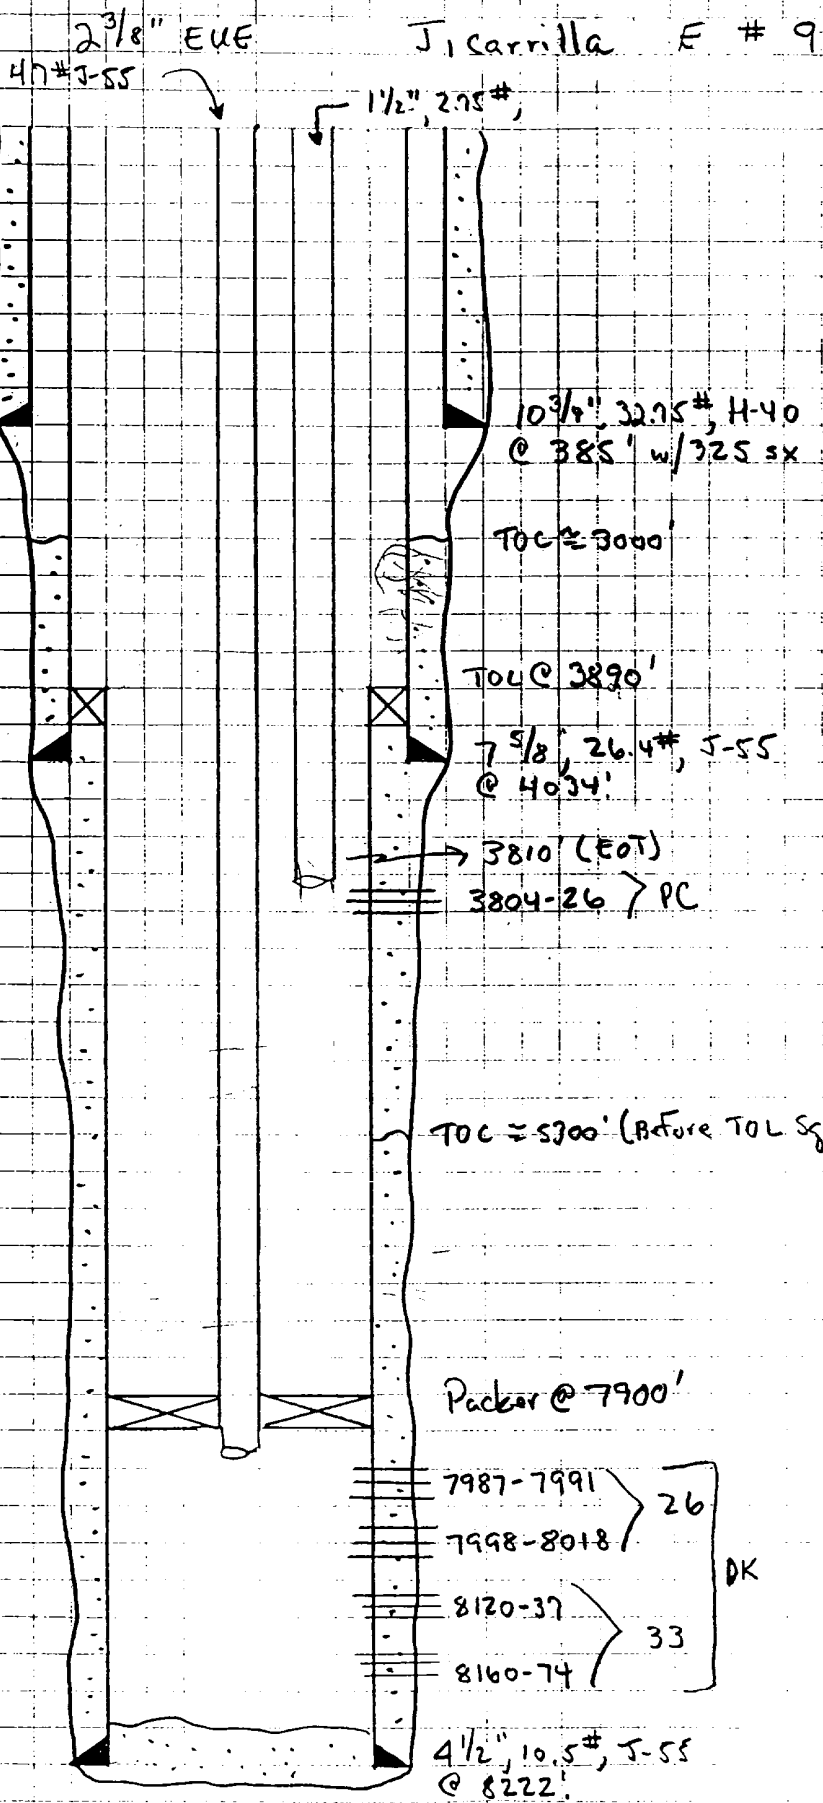 2 3/8" EUE
Jicarrilla E # 9
4.7# J-55
1 1/2", 2.75#,
10 3/4", 32.75#, H-40
@ 385' w/325 sx
TOC ≈ 3000'
TOL @ 3890'
7 5/8", 26.4#, J-55
@ 4034'
3810' (EOT)
3804-26 } PC
TOC ≈ 5300' (Before TOL Sq
Packer @ 7900'
7987-7991
26
7998-8018
DK
8120-37
33
8160-74
4 1/2", 10.5#, J-55
@ 8222'